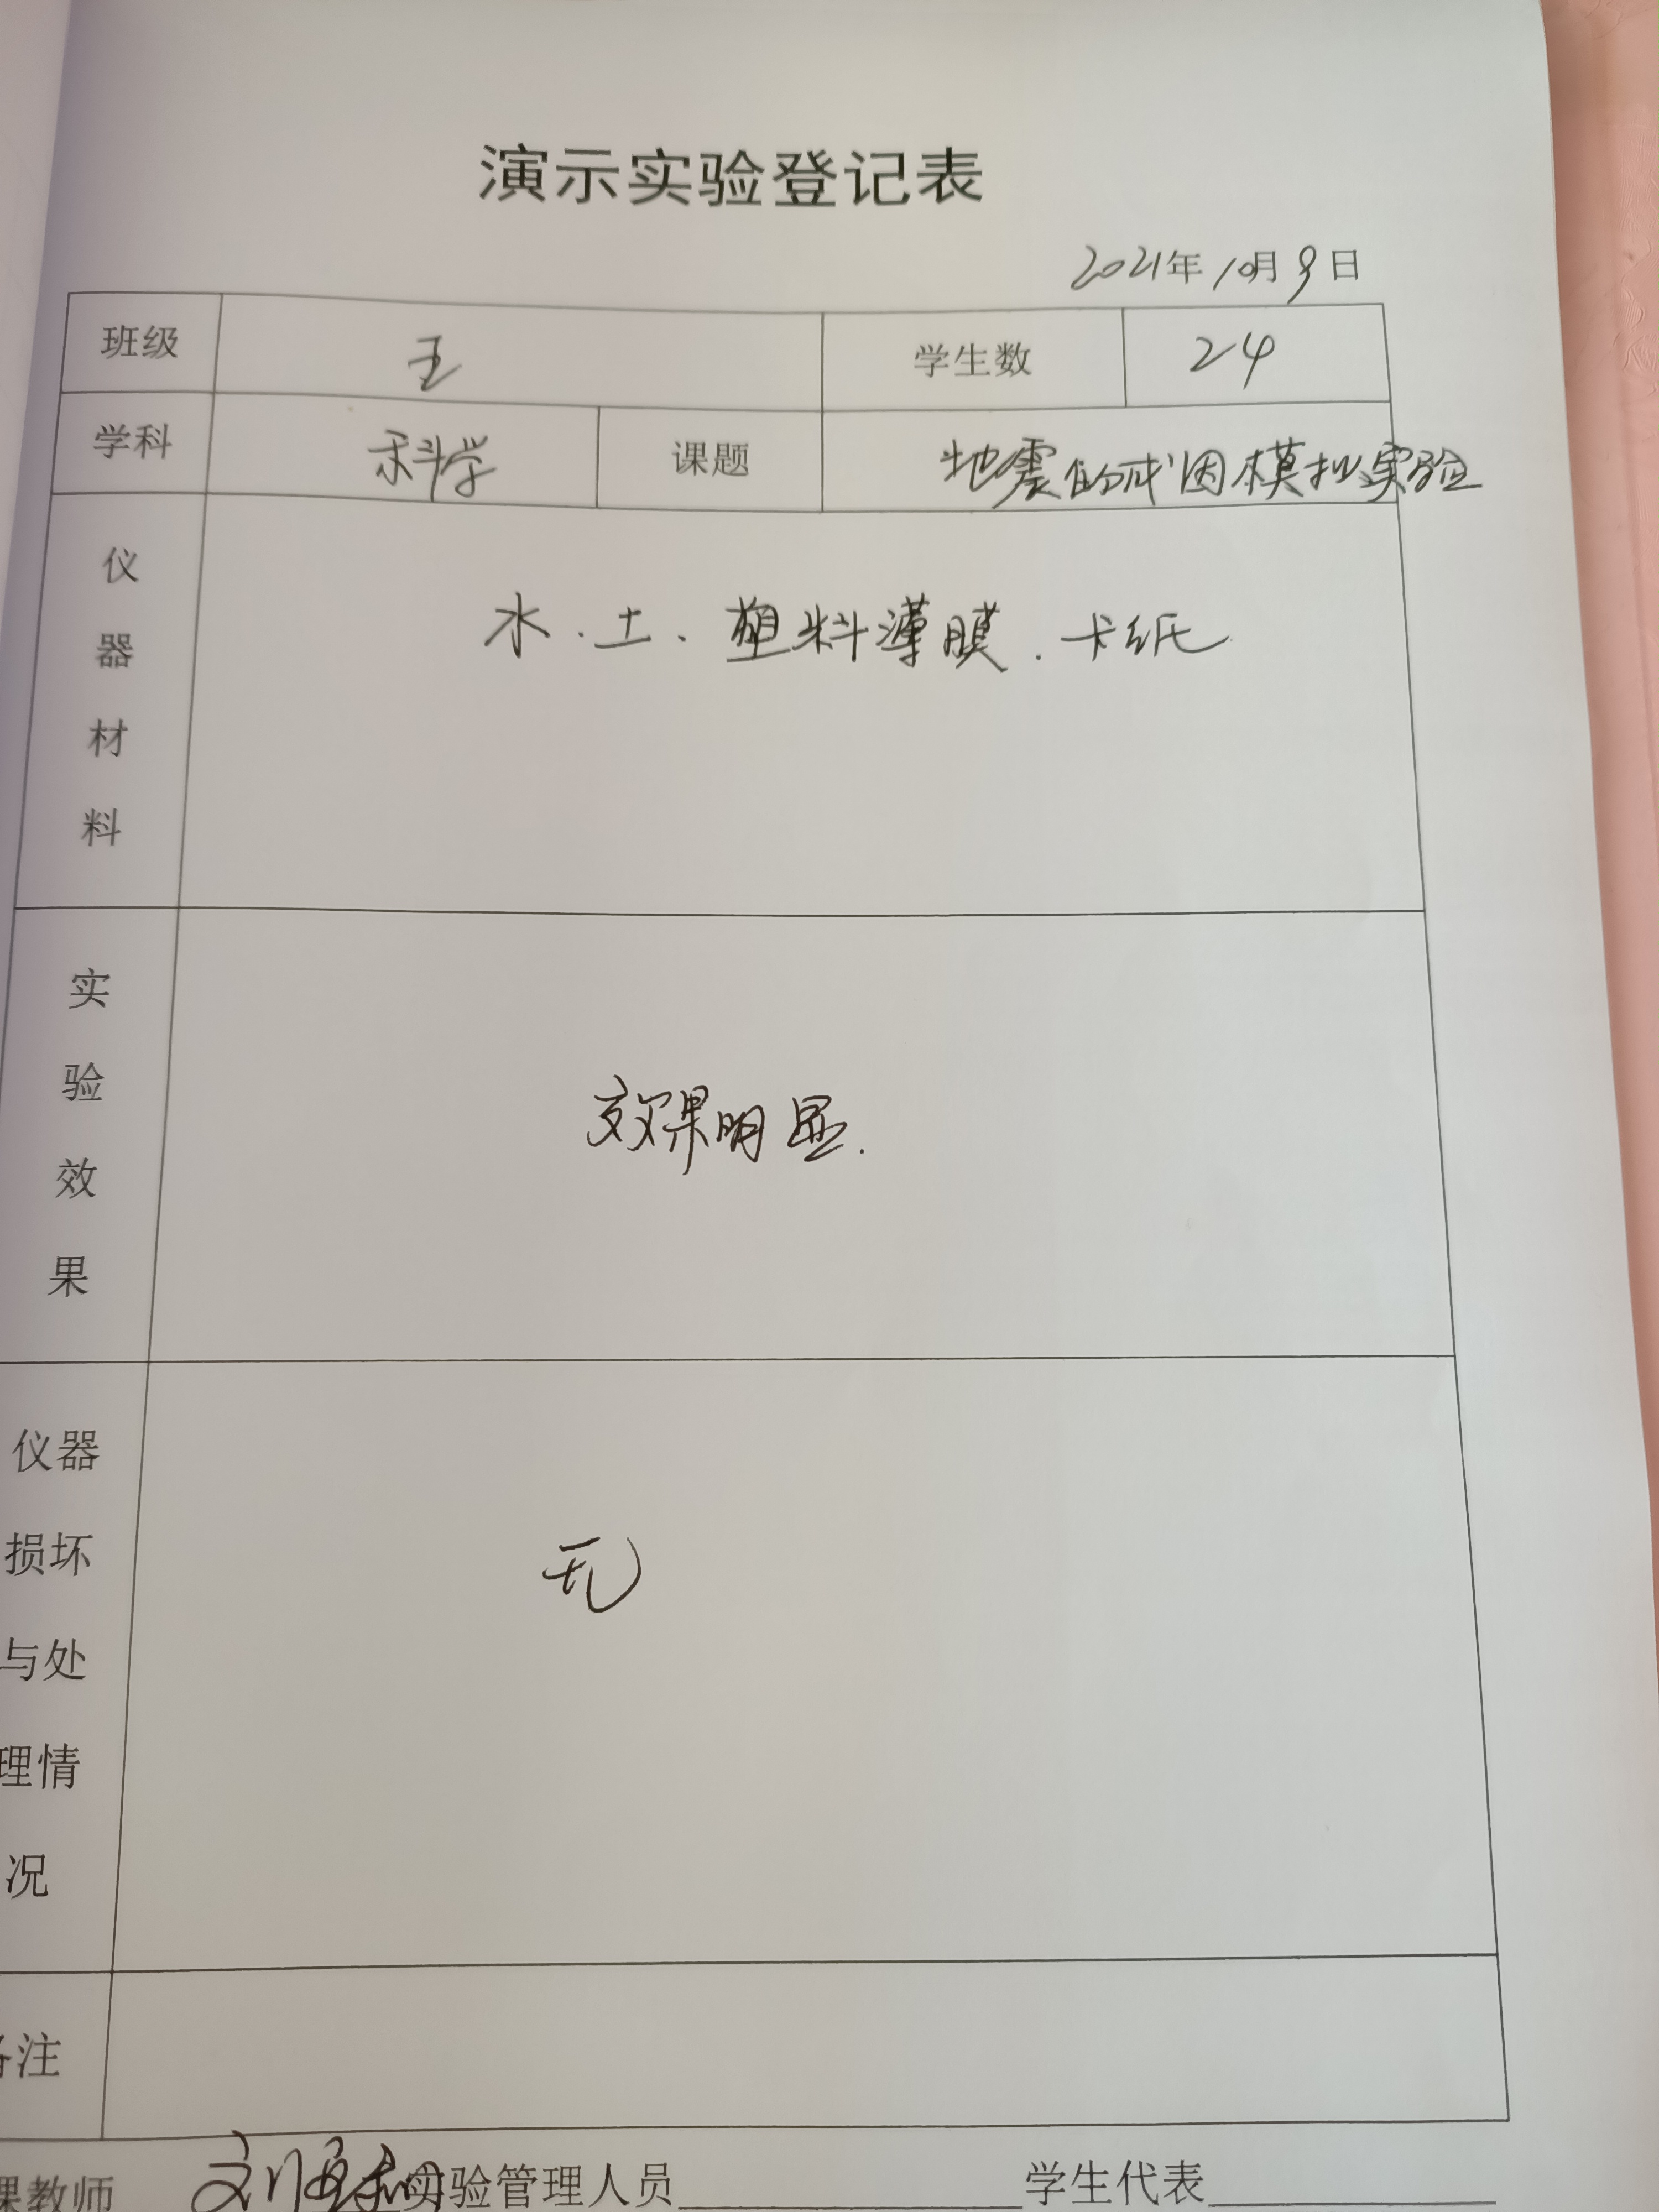 演示实验登记表
2021年10月9日
班级 五 学生数 24
学科 科学 课题 地震的成因模拟实验
仪器材料 水.土.塑料薄膜.卡纸
实验效果 效果明显.
仪器损坏与处理情况 无
备注
课教师 刘 实验管理人员 学生代表